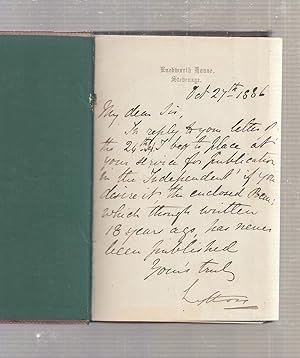 Knebworth House,
Stevenage.
Oct 27th 1886
My dear Sir,
In reply to your letter of
the 26th I beg to place at
your service for publication
in the Independent if you
desire it the enclosed Poem;
which though written
18 years ago, has never
been published
Yours truly
Lytton